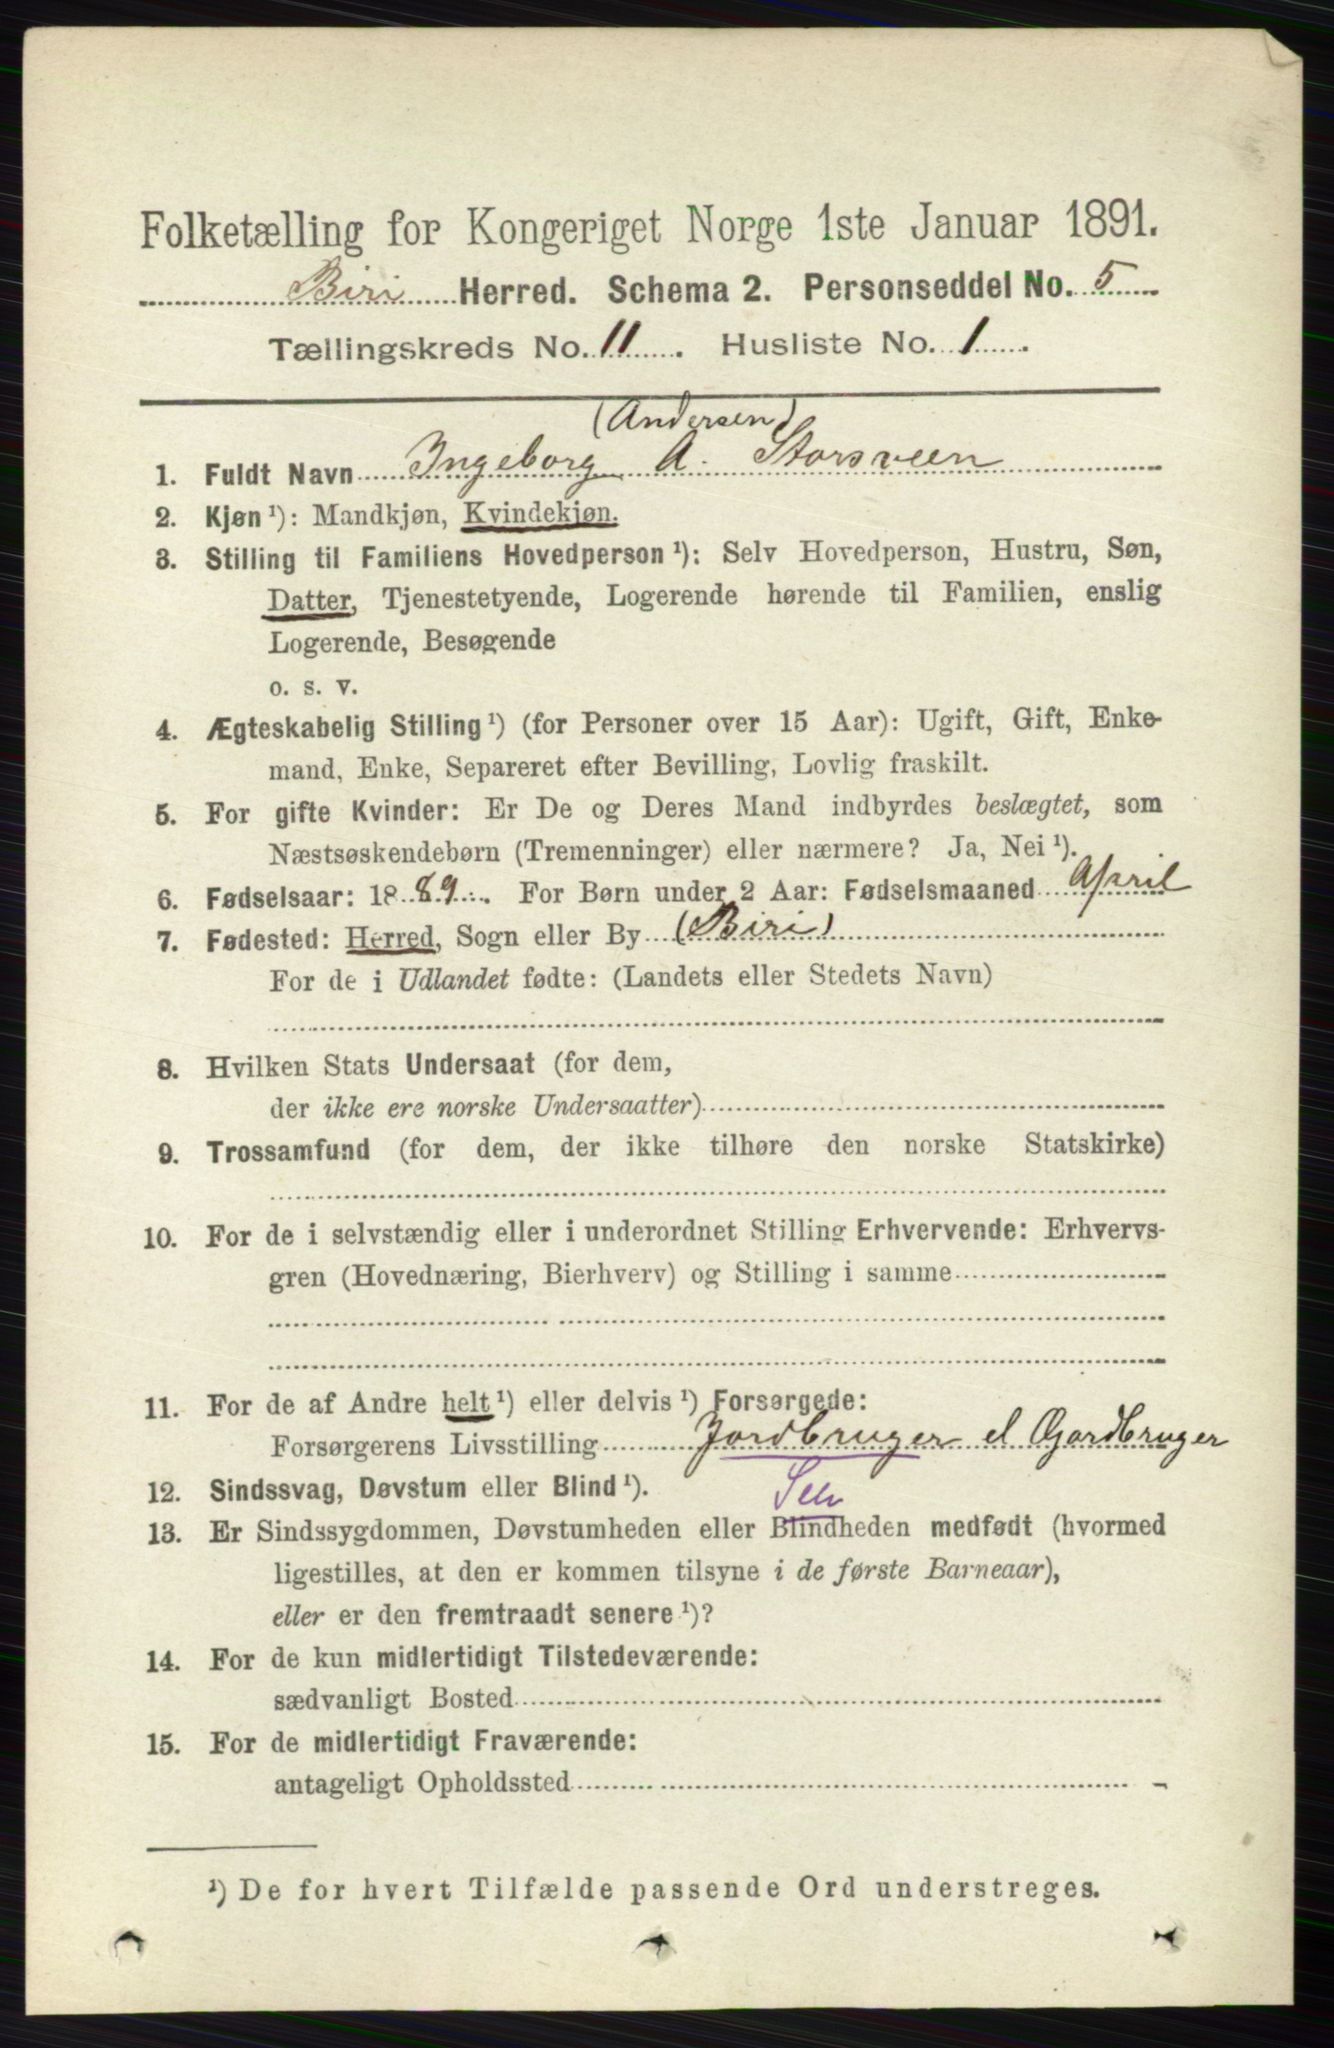 Folketælling for Kongeriget Norge 1ste Januar 1891.
Biri Herred. Schema 2. Personseddel No. 5
Tællingskreds No. 11. Husliste No. 1.
(Andersen)
1. Fuldt Navn Ingeborg A. Storsveen
2. Kjøn ¹): Mandkjøn, Kvindekjøn.
3. Stilling til Familiens Hovedperson ¹): Selv Hovedperson, Hustru, Søn,
Datter, Tjenestetyende, Logerende hørende til Familien, enslig
Logerende, Besøgende
o. s. v.
4. Ægteskabelig Stilling ¹) (for Personer over 15 Aar): Ugift, Gift, Enke-
mand, Enke, Separeret efter Bevilling, Lovlig fraskilt.
5. For gifte Kvinder: Er De og Deres Mand indbyrdes beslægtet, som
Næstsøskendebørn (Tremenninger) eller nærmere? Ja, Nei ¹).
6. Fødselsaar: 1889. For Børn under 2 Aar: Fødselsmaaned April
7. Fødested: Herred, Sogn eller By (Biri)
For de i Udlandet fødte: (Landets eller Stedets Navn)
8. Hvilken Stats Undersaat (for dem,
der ikke ere norske Undersaatter)
9. Trossamfund (for dem, der ikke tilhøre den norske Statskirke)
10. For de i selvstændig eller i underordnet Stilling Erhvervende: Erhvervs-
gren (Hovednæring, Bierhverv) og Stilling i samme
11. For de af Andre helt ¹) eller delvis ¹) Forsørgede:
Forsørgerens Livsstilling Jordbruger el Gjordbruger
12. Sindssvag, Døvstum eller Blind ¹). Selv
13. Er Sindssygdommen, Døvstumheden eller Blindheden medfødt (hvormed
ligestilles, at den er kommen tilsyne i de første Barneaar),
eller er den fremtraadt senere ¹)?
14. For de kun midlertidigt Tilstedeværende:
sædvanligt Bosted
15. For de midlertidigt Fraværende:
antageligt Opholdssted
¹) De for hvert Tilfælde passende Ord understreges.